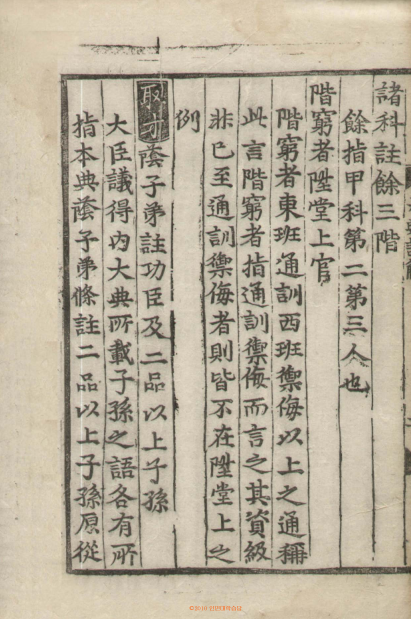 諸科註餘三階
餘指甲科第二第三人也
階窮者陞堂上官
階窮者東班通訓西班禦侮以上之通稱
此言階窮者指通訓禦侮而言之其資級
非已至通訓禦侮者則皆不在陞堂上之
例
取才蔭子弟註功臣及二品以上子孫
大臣議得內大典所載子孫之語各有所
指本典蔭子弟條註二品以上子孫原從